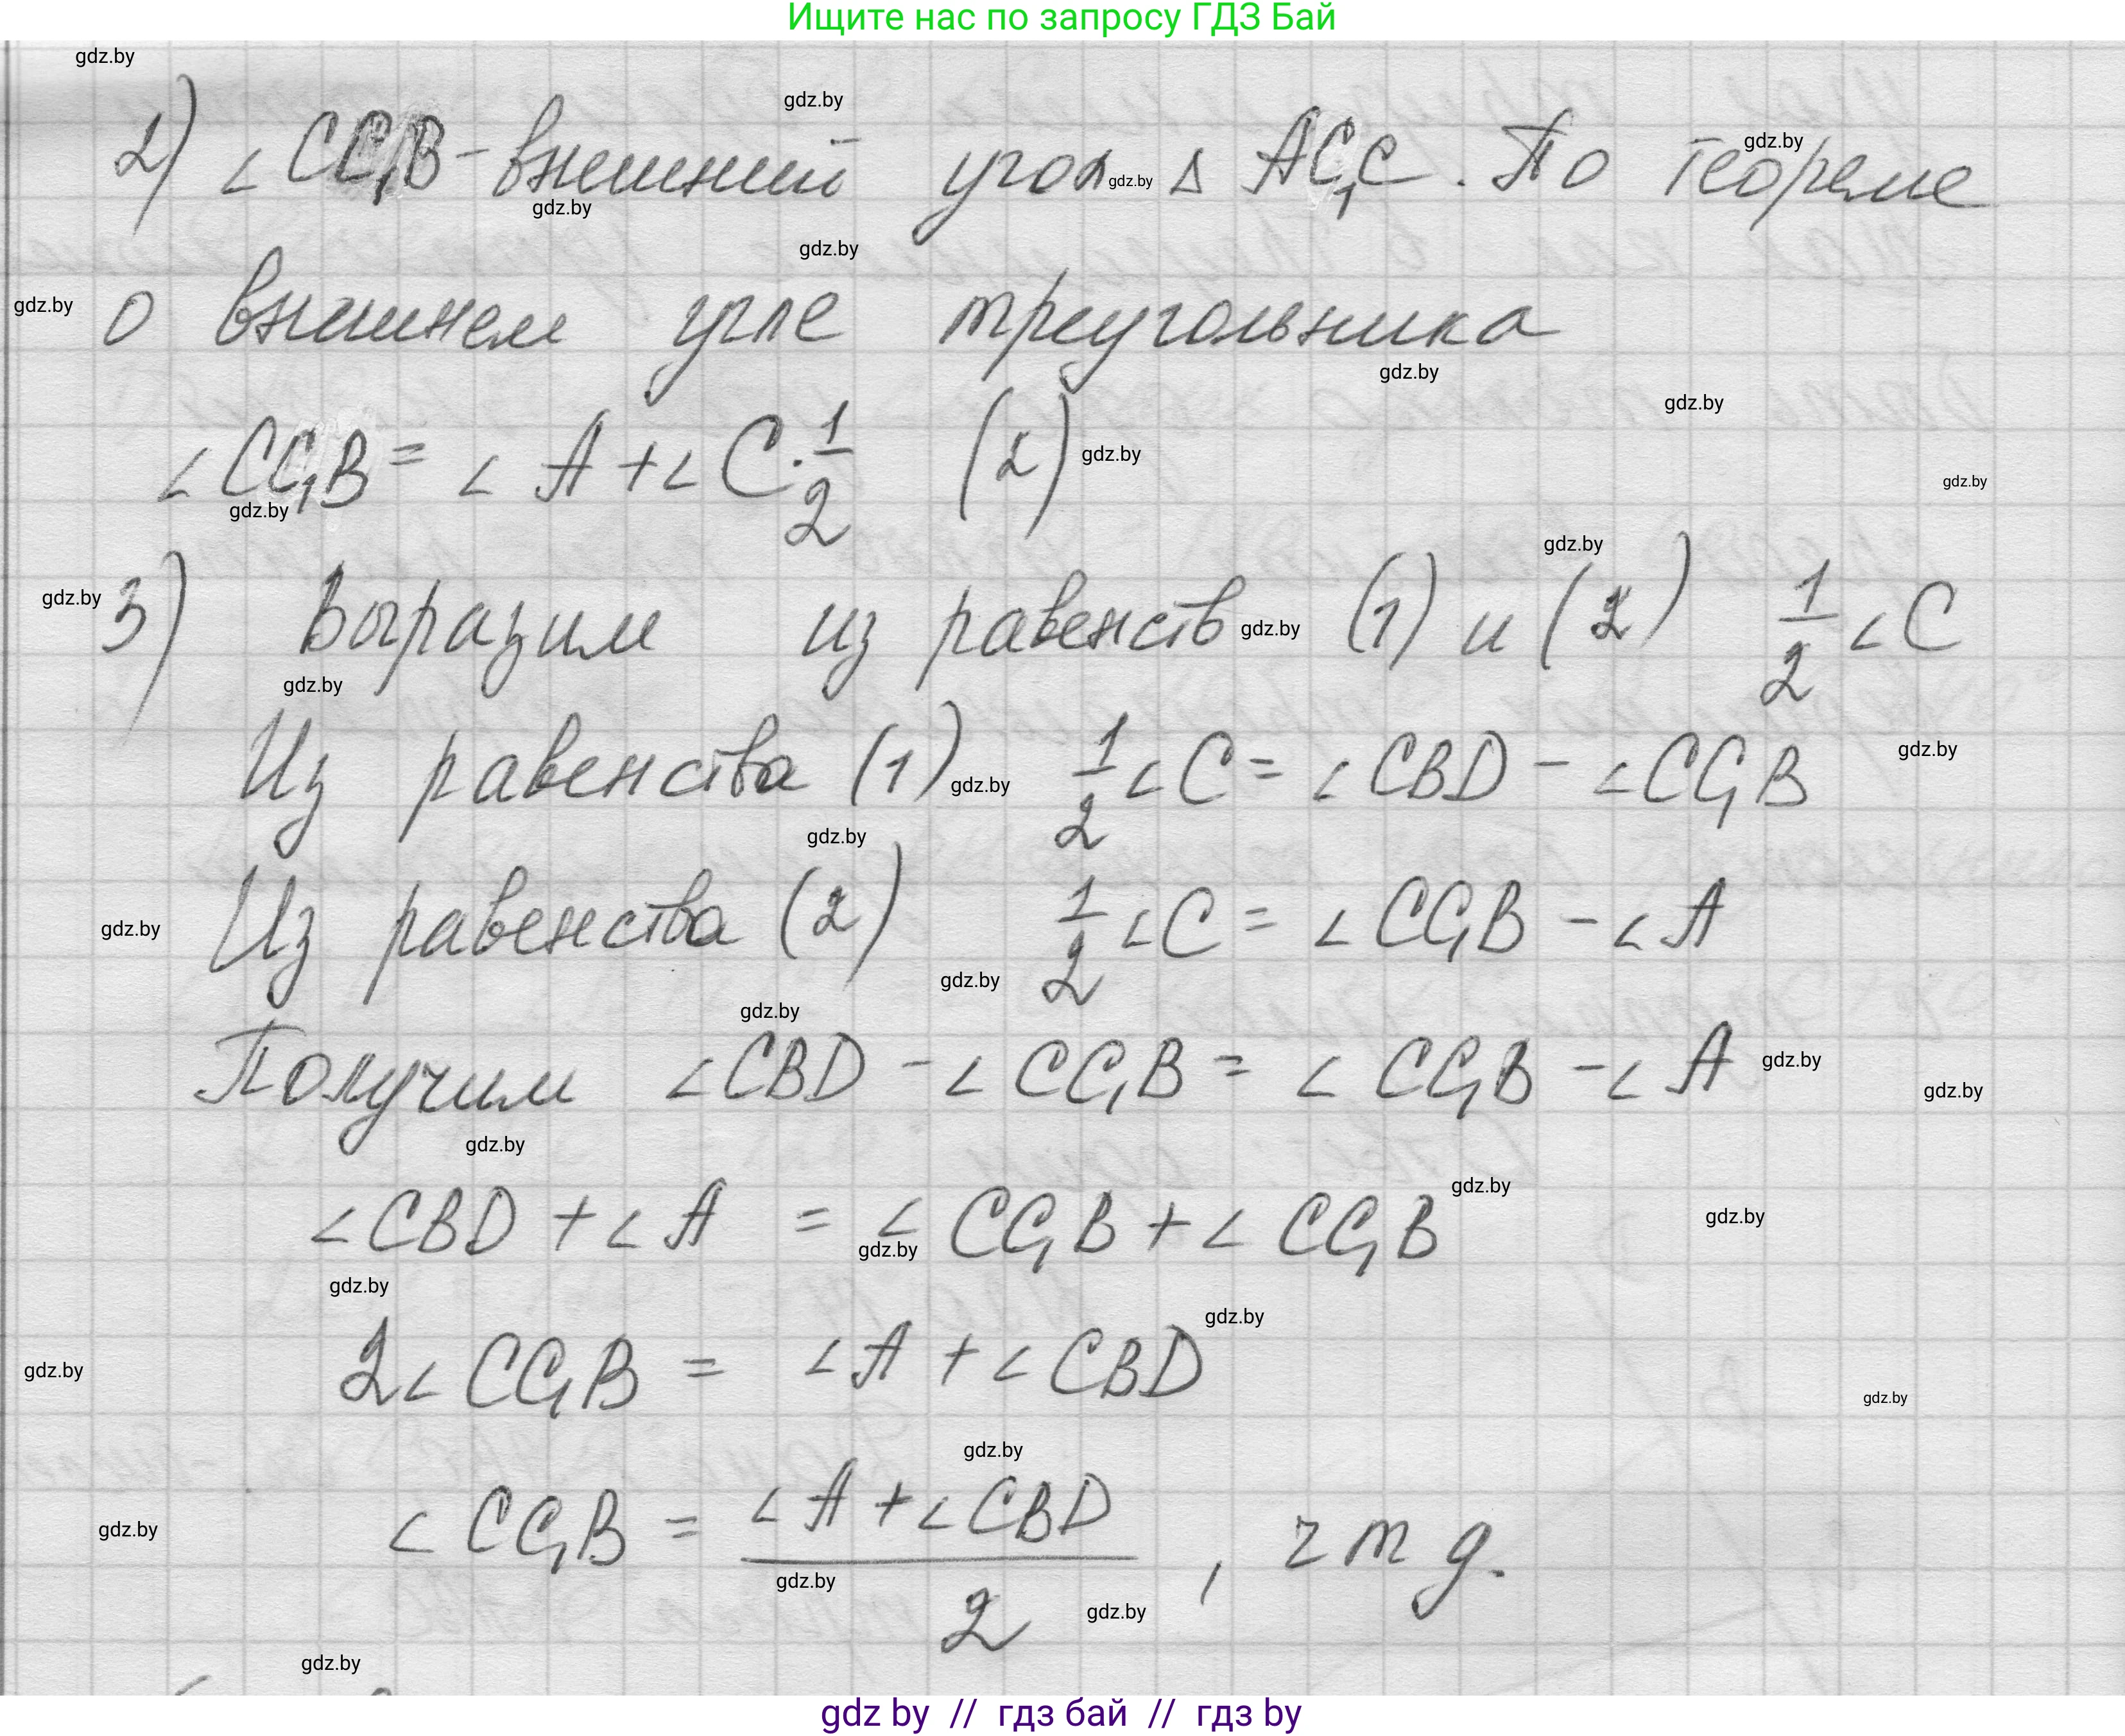 Ищите нас по запросу ГДЗ Бай
gdz.by
2) ∠CC₁B - внешний угол Δ AC₁C. По теореме
о внешнем угле треугольника
∠CC₁B = ∠A + ∠C · 1/2 (2)
3) Выразим из равенств (1) и (2) 1/2 ∠C
Из равенства (1) 1/2 ∠C = ∠CBD - ∠CC₁B
Из равенства (2) 1/2 ∠C = ∠CC₁B - ∠A
Получим ∠CBD - ∠CC₁B = ∠CC₁B - ∠A
∠CBD + ∠A = ∠CC₁B + ∠CC₁B
2∠CC₁B = ∠A + ∠CBD
∠CC₁B = (∠A + ∠CBD)/2, ч т д.
gdz by // гдз бай // гдз by